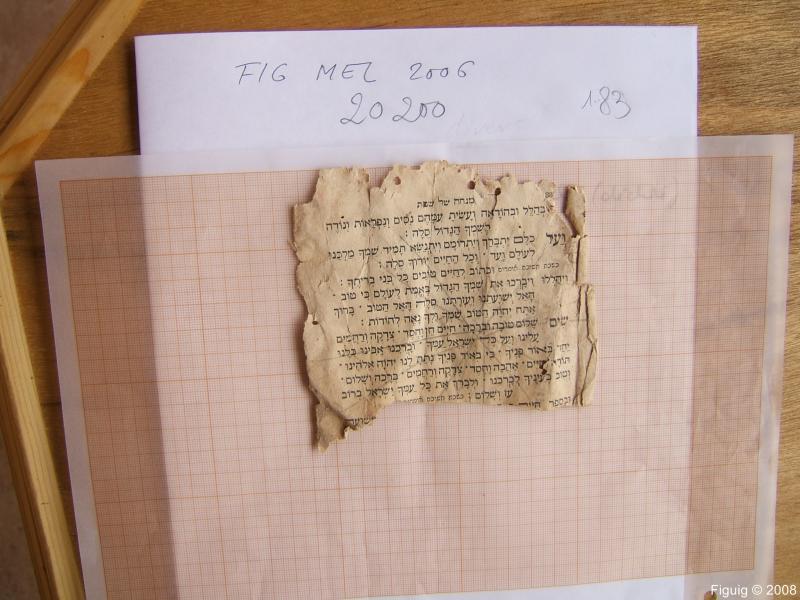 FIG MEL 2006
20 200
1.83
מנחה של שבת
בהלל ובהודאה ועשית עמהם נסים ונפלאות ונודה
לשמך הגדול סלה :
ועל כלם יתברך ויתרומם ויתנשא תמיד שמך מלכנו
לעולם ועד · וכל החיים יודוך סלה :
וכתוב לחיים טובים כל בני בריתך :
ויהללו ויברכו את שמך הגדול באמת לעולם כי טוב ·
האל ישועתנו ועזרתנו סלה האל הטוב · ברוך
אתה יהוה הטוב שמך ולך נאה להודות :
שים שלום טובה וברכה · חיים חן וחסד · צדקה ורחמים
עלינו ועל כל ישראל עמך · וברכנו אבינו כלנו
יחד באור פניך · כי באור פניך נתת לנו יהוה אלהינו ·
תורה וחיים · אהבה וחסד · צדקה ורחמים · ברכה ושלום ·
וטוב בעיניך לברכנו · ולברך את כל עמך ישראל ברוב
עז ושלום :
ובספר חיים
Figuig © 2008